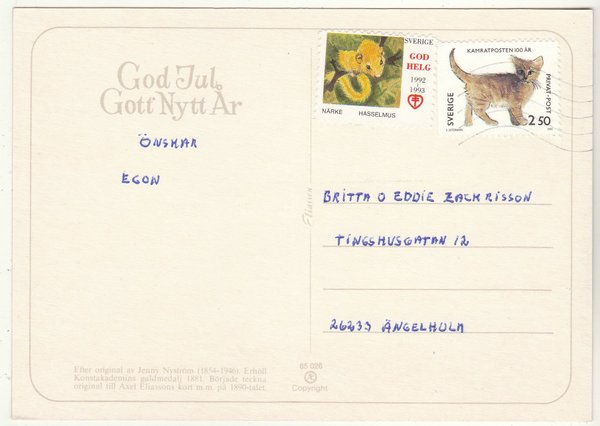 God Jul
Gott Nytt År
ÖNSKAR
EGON
SVERIGE
GOD
HELG
1992
1993
NÄRKE HASSELMUS
KAMRATPOSTEN 100 ÅR
SVERIGE
PRIVAT-POST
2 50
BRITTA O EDDIE ZACKRISSON
TINGSHUSGATAN 12
26233 ÄNGELHOLM
Eliasson
Efter original av Jenny Nyström (1854-1946). Erhöll
Konstakademins guldmedalj 1881. Började teckna
original till Axel Eliassons kort m.m. på 1890-talet.
65 026
Copyright